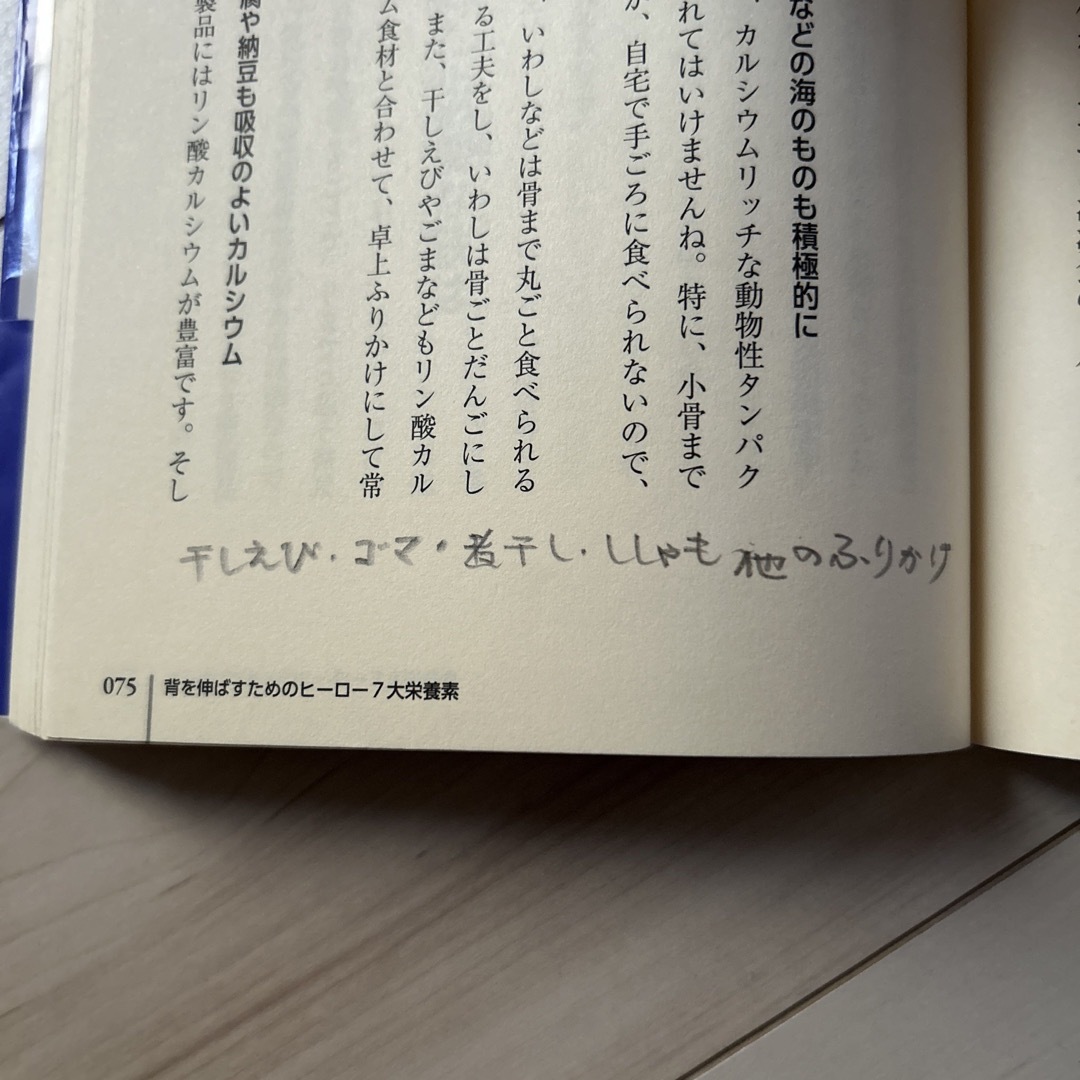 などの海のものも積極的に
カルシウムリッチな動物性タンパク
れてはいけませんね。特に、小骨まで
が、自宅で手ごろに食べられないので、
、いわしなどは骨まで丸ごと食べられる
る工夫をし、いわしは骨ごとだんごにし
また、干しえびやごまなどもリン酸カル
ム食材と合わせて、卓上ふりかけにして常
腐や納豆も吸収のよいカルシウム
製品にはリン酸カルシウムが豊富です。そし
干しえび・ゴマ・煮干し・ししゃも 他のふりかけ
075 背を伸ばすためのヒーロー7大栄養素